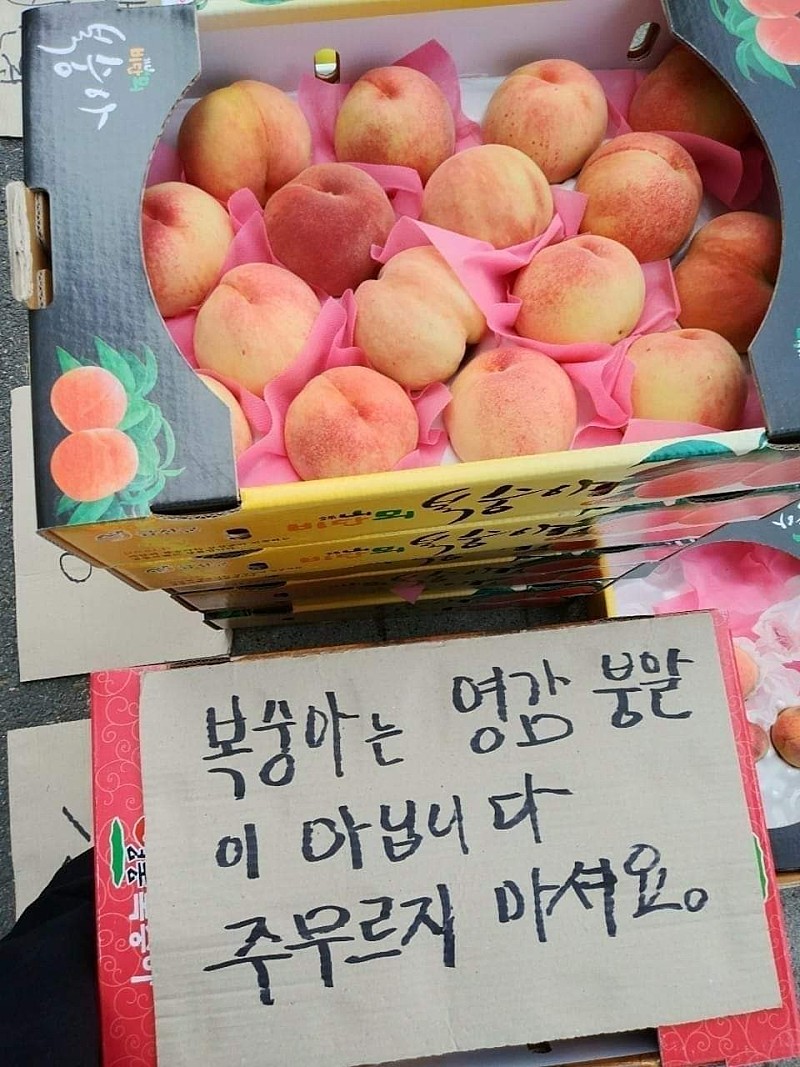 복숭아
복숭아는 영감 붕알
이 아닙니다
주무르지 마셔요。